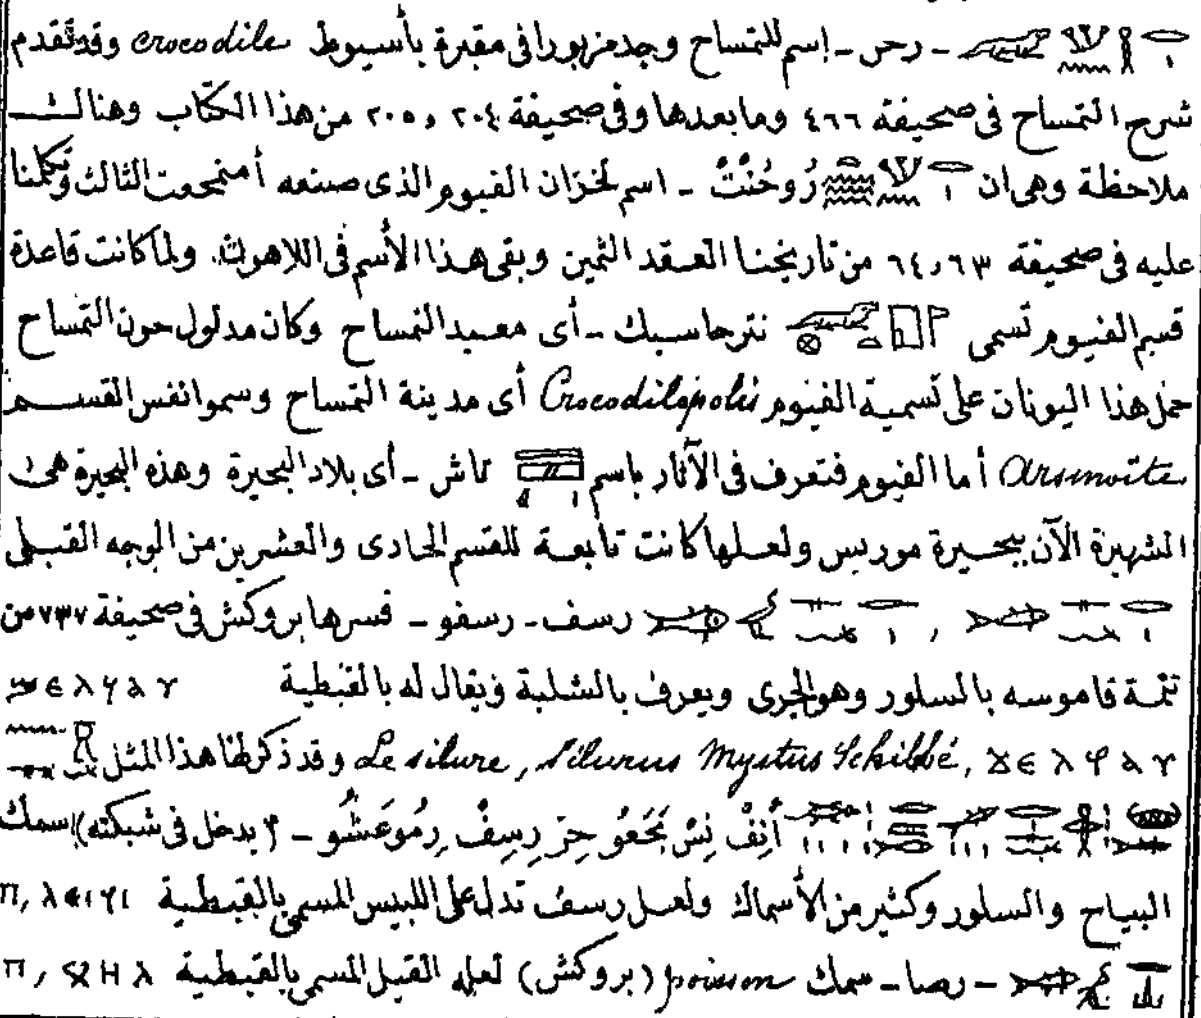 - رحس - إسم للتمساح وجد مزبورا فى مقبرة بأسيوط crocodile وقد تقدم
شرح التمساح فى صحيفة ٤٦٦ وما بعدها وفى صحيفة ٢٠٤ و ٢٠٥ من هذا الكتاب وهنالك
ملاحظة وهى ان رُوحُنْتْ - اسم لخزان الفيوم الذى صنعه أمنمحعت الثالث وتكلمنا
عليه فى صحيفة ٦٣ و ٦٤ من تاريخنا العقد الثمين وبقى هذا الأسم فى اللاهون. ولما كانت قاعدة
قسم الفيوم تسمى نترحاسبك - أى معبد التمساح وكان مدلول حون التمساح
حمل هذا اليونان على تسمية الفيوم Crocodilopolis أى مدينة التمساح وسموا نفس القسم
Arsinoïte أما الفيوم فتعرف فى الآثار باسم تاش - أى بلاد البحيرة وهذه البحيرة هى
الشهيرة الآن ببحيرة موريس ولعلها كانت تابعة للقسم الحادى والعشرين من الوجه القبلى
, رسف - رسفو - فسرها بروكش فى صحيفة ٧٣٧ من
تتمة قاموسه بالسلور وهو الجرى ويعرف بالشلبة ويقال له بالقبطية
Le silure, silurus Mystus Schilbé, وقد ذكر لها هذا المثل
أَنِفْ نِسْ بَحَعَوُ حِرْ رِسِفْ رِمُوعَشُو - (يدخل فى شبكته) اسماك
البياح والسلور وكثير من الأسماك ولعل رسف تدل على اللبيس المسمى بالقبطية
- رصا - سمك poisson (بروكش) لعله القيل المسمى بالقبطية